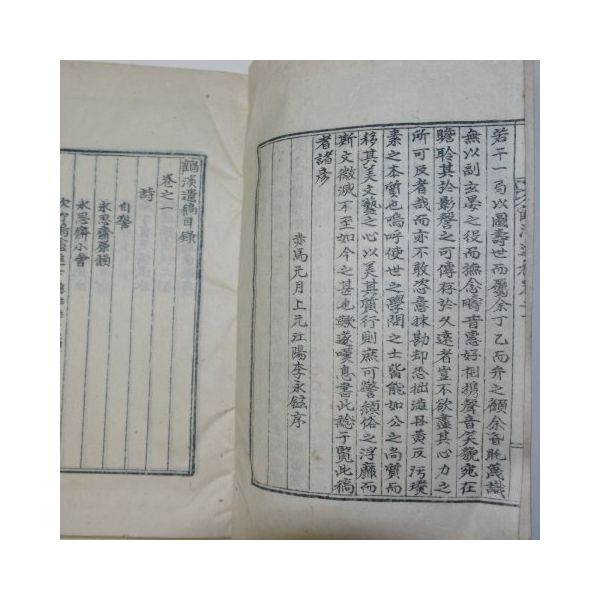 若干一弓以圖壽世而屬余丁乙而弁之顧余昏眊萬識
無以副玄晏之役而撫念疇昔惠好相携聲音笑貌宛在
瞻聆其於影響之可傳於久遠者豈不欲盡其心力之
所可及者哉而亦不敢恣意抹勘却恐拙滋昌黃反汚璞
素之本質也嗚呼使世之學問之士皆能如公之尚質而
移其美文藝之心以美其質行則庶可警頹俗之浮靡而
斯文微滅不至如今之甚也緣遂嘆息書此諗于覽此稿
者諸彦
赤馬元月上元江陽李永鎰序
鶴溪遺稿目錄
卷之一
詩
自警
永思齋原韻
永思齋小會